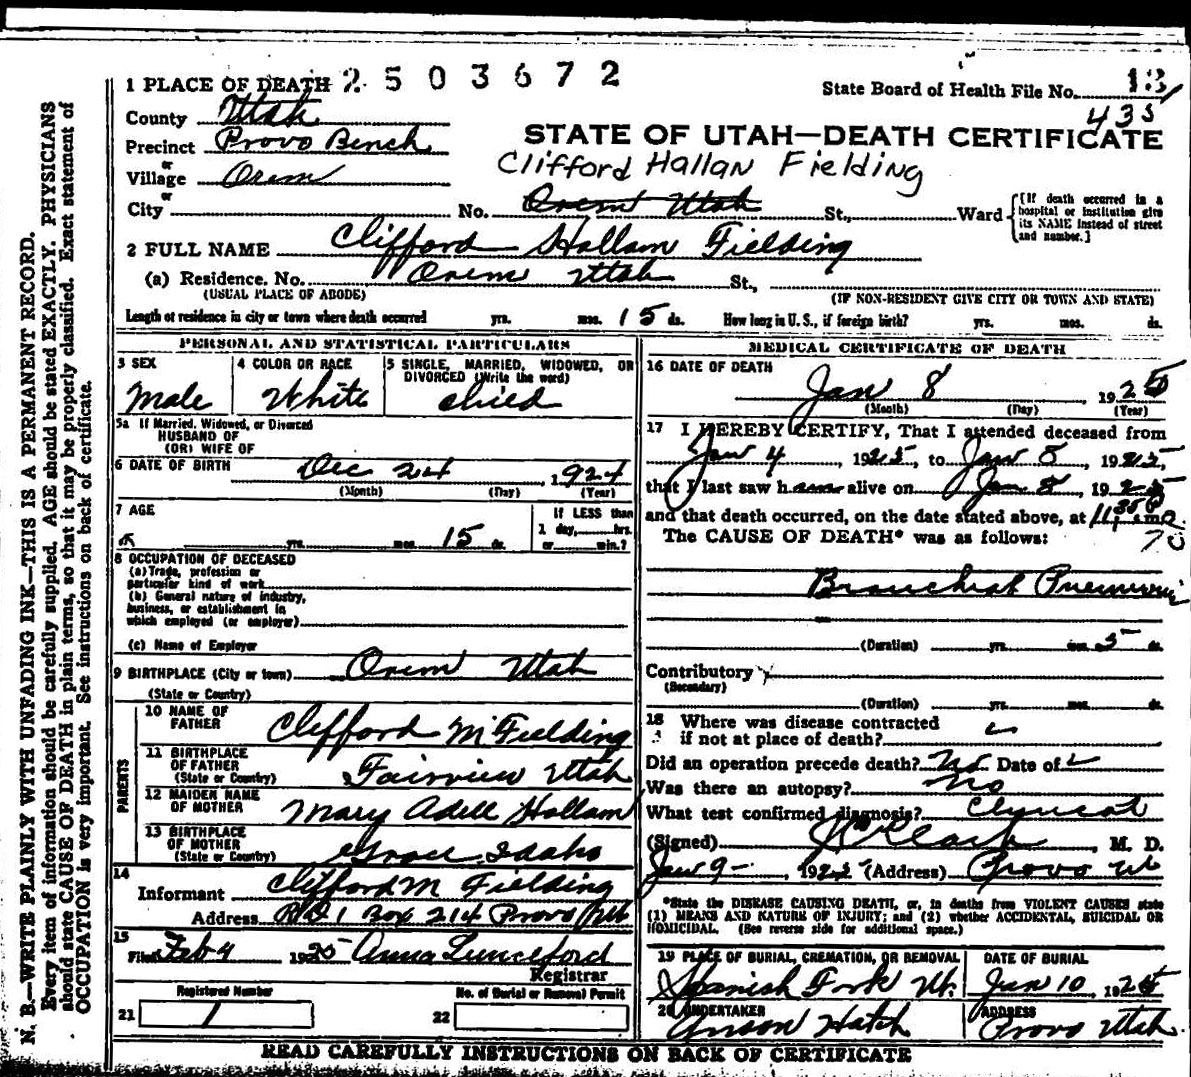 N. B.—WRITE PLAINLY WITH UNFADING INK—THIS IS A PERMANENT RECORD.
Every item of information should be carefully supplied. AGE should be stated EXACTLY. PHYSICIANS
should state CAUSE OF DEATH in plain terms, so that it may be properly classified. Exact statement of
OCCUPATION is very important. See instructions on back of certificate.
1 PLACE OF DEATH 2503672
State Board of Health File No. 13
435
County Utah
STATE OF UTAH—DEATH CERTIFICATE
Precinct Provo Bench
Clifford Hallan Fielding
or
Village Orem
or
City No. Orem Utah St., Ward
[If death occurred in a
hospital or institution give
its NAME instead of street
and number.]
2 FULL NAME Clifford Hallam Fielding
(a) Residence. No. Orem Utah St.,
(USUAL PLACE OF ABODE) (IF NON-RESIDENT GIVE CITY OR TOWN AND STATE)
Length of residence in city or town where death occurred yrs. mos. 15 ds. How long in U. S., if foreign birth? yrs. mos. ds.
PERSONAL AND STATISTICAL PARTICULARS
3 SEX 4 COLOR OR RACE 5 SINGLE, MARRIED, WIDOWED, OR
DIVORCED (Write the word)
Male White child
5a If Married, Widowed, or Divorced
HUSBAND OF
(OR) WIFE OF
6 DATE OF BIRTH Dec 24, 1924
(Month) (Day) (Year)
7 AGE
If LESS than
1 day, hrs.
or min.?
yrs. mos. 15 ds.
8 OCCUPATION OF DECEASED
(a) Trade, profession or
particular kind of work
(b) General nature of industry,
business, or establishment in
which employed (or employer)
(c) Name of Employer
9 BIRTHPLACE (City or town) Orem Utah
(State or Country)
PARENTS
10 NAME OF
FATHER Clifford M Fielding
11 BIRTHPLACE
OF FATHER
(State or Country) Fairview Utah
12 MAIDEN NAME
OF MOTHER Mary Adell Hallam
13 BIRTHPLACE
OF MOTHER
(State or Country) Grace, Idaho
14
Informant Clifford M Fielding
Address R.D. 1 Box 214 Provo Ut
15
Filed Feb 4 1925 Anna Lunceford
Registrar
Registered Number No. of Burial or Removal Permit
21 1 22
MEDICAL CERTIFICATE OF DEATH
16 DATE OF DEATH
Jan 8, 1925
(Month) (Day) (Year)
17 I HEREBY CERTIFY, That I attended deceased from
Jan 4, 1925, to Jan 8, 1925,
that I last saw him alive on Jan 8, 1925
and that death occurred, on the date stated above, at 11,35 P m.
The CAUSE OF DEATH* was as follows:
Bronchial Pneumonia
(Duration) yrs. mos. 5 ds.
Contributory
(Secondary)
(Duration) yrs. mos. ds.
18 Where was disease contracted
if not at place of death?
Did an operation precede death? No Date of
Was there an autopsy? No
What test confirmed diagnosis? Clynical
(Signed) Clark, M. D.
Jan 9, 1925 (Address) Provo Ut
*State the DISEASE CAUSING DEATH, or, in deaths from VIOLENT CAUSES state
(1) MEANS AND NATURE OF INJURY; and (2) whether ACCIDENTAL, SUICIDAL OR
HOMICIDAL. (See reverse side for additional space.)
19 PLACE OF BURIAL, CREMATION, OR REMOVAL DATE OF BURIAL
Spanish Fork Ut. Jan 10, 1925
20 UNDERTAKER ADDRESS
Anson Hatch Provo Utah
READ CAREFULLY INSTRUCTIONS ON BACK OF CERTIFICATE